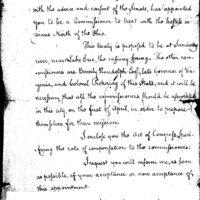 with the advice and consent of the Senate, has appointed
you to be a Commissioner to treat with the hostile in=
dians North of the Ohio.
This treaty is proposed to be at Sandusky
river, near Lake Erie, the ensuing spring. The other com=
missioners are Beverly Randolph Esqr. late Governor of Vir=
ginia, and Colonel Pickering of this State, and it will be
necessary, that all the commissioners should be
in this city, on the first of April, in order to prepare
themselves for their mission.
I enclose you the Act of Congress, speci=
fying the rate of compensation to the commissioners.
I request you will inform me, as soon
as possible, of your acceptance or non acceptance of
this appointment.